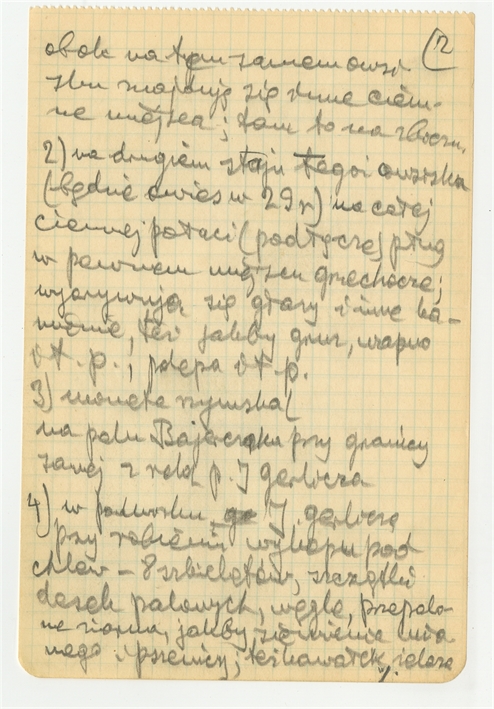 (12
obok na tym samem owsi-
sku znajdują się inne ciem-
ne miejsca; tam to na zboczu.
2) na drugiem staju tegoż owsiska
(będzie owies w 29 r) na całej
ciemnej połaci (podłużnej) pług
w pewnem miejscu grzechocze;
wyorywują się głazy i inne ka-
mienie, też jakby gruz, wapno
i t. p.; polepa i t. p.
3) moneta rzymska (
na polu Bajerczaka przy granicy
zaraz z rolą p. J gerlicza
4) w podwórku J. gerlicza
przy robieniu wykopu pod
chlew – 8 szkieletów, szczątki
desek palonych, węgle, przepalo-
ne ziarna, jakby siemienia lnia-
nego i pszenicy; też kawałek żelaza